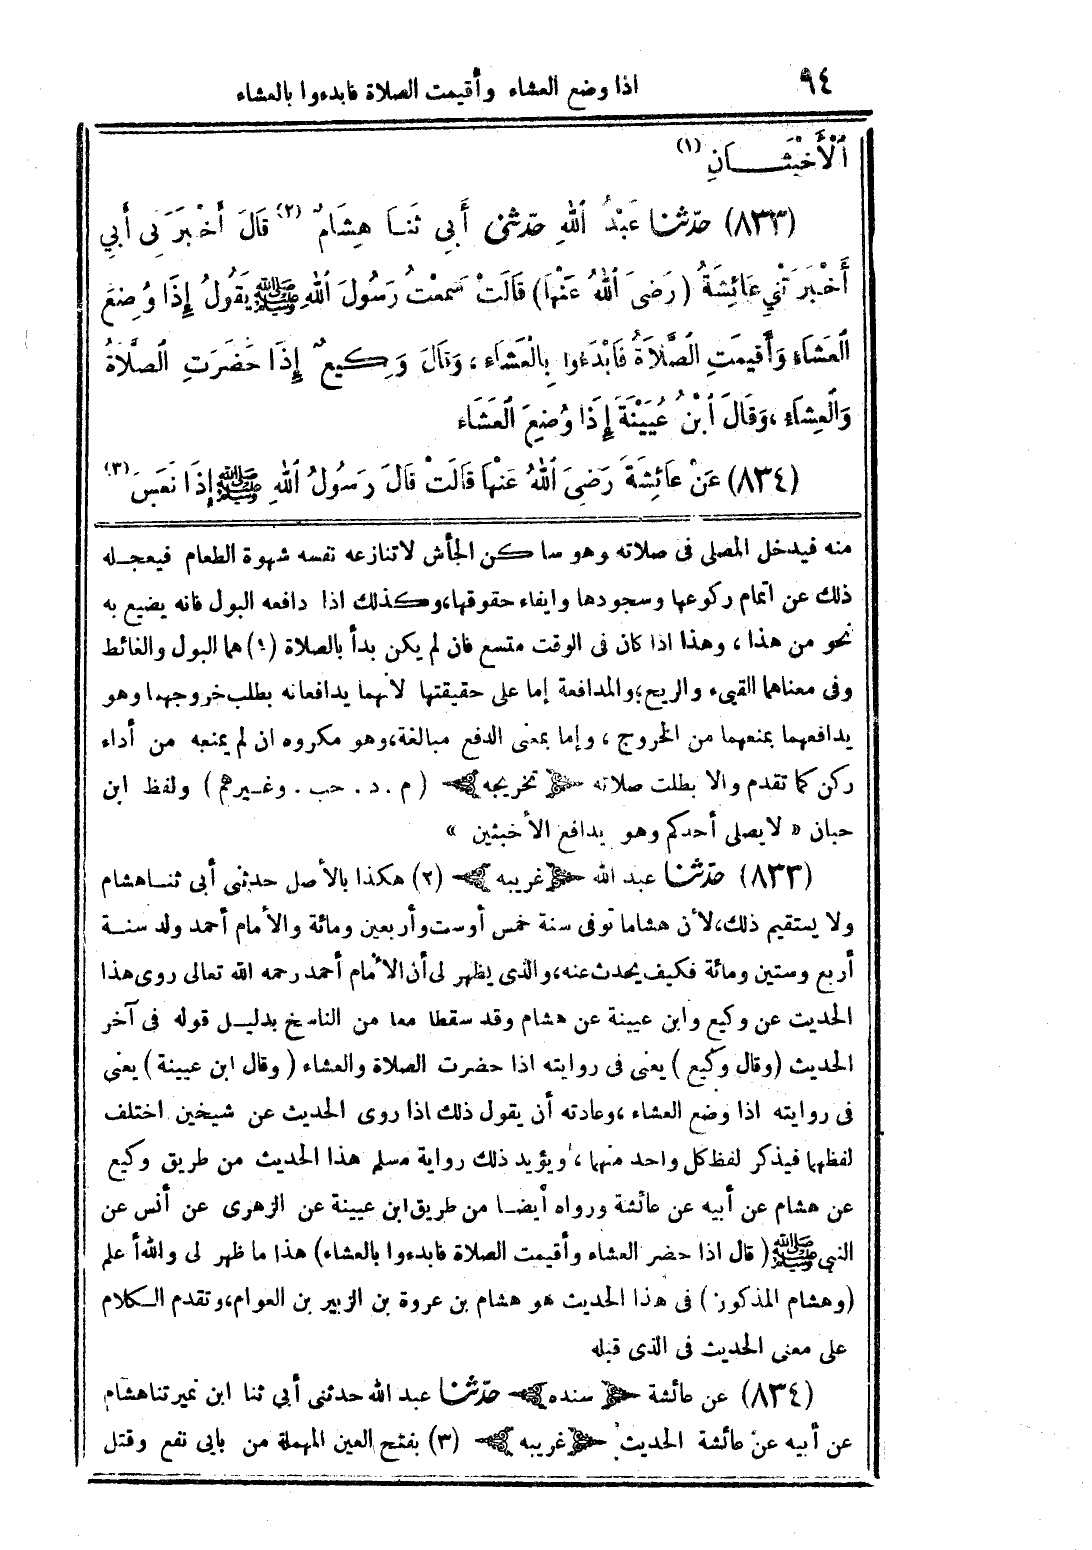 ٩٤
اذا وضع العشاء وأقيمت الصلاة فابدءوا بالعشاء
ٱلْأَخْبَثَانِ (١)
(٨٣٣) حَدّثنا عَبْدُ ٱللهِ حَدّثنى أَبِى ثَنَا هِشَامٌ (٢) قَالَ أَخْبَرَنِى أَبِي
أَخْبَرَتْنِي عَائِشَةُ (رَضِىَ ٱللهُ عَنْهَا) قَالَتْ سَمِعْتُ رَسُولَ ٱللهِ ﷺ يَقُولُ إِذَا وُضِعَ
ٱلْعَشَاءُ وَأُقِيمَتِ ٱلصَّلَاةُ فَابْدَءُوا بِالْعَشَاءِ، وَقَالَ وَكِيعٌ إِذَا حَضَرَتِ ٱلصَّلَاةُ
وَٱلْعِشَاءُ، وَقَالَ ٱبْنُ عُيَيْنَةَ إِذَا وُضِعَ ٱلْعَشَاءُ
(٨٣٤) عَنْ عَائِشَةَ رَضِىَ ٱللهُ عَنْهَا قَالَتْ قَالَ رَسُولُ ٱللهِ ﷺ إِذَا نَعَسَ (٣)
منه فيدخل المصلى فى صلاته وهو ساكن الجأش لا تنازعه نفسه شهوة الطعام فيعجله
ذلك عن اتمام ركوعها وسجودها وايفاء حقوقها، وكذلك اذا دافعه البول فانه يضيع به
نحو من هذا، وهذا اذا كان فى الوقت متسع فان لم يكن بدأ بالصلاة (١) هما البول والغائط
وفى معناهما القيىء والريح؛ والمدافعة إما على حقيقتها لأنهما يدافعانه بطلب خروجهما وهو
يدافعهما بمنعهما من الخروج، وإما بمعنى الدفع مبالغة، وهو مكروه ان لم يمنعه من أداء
ركن كما تقدم والا بطلت صلاته ﴿تخريجه﴾ (م . د . حب . وغيرهم) ولفظ ابن
حبان « لا يصلى أحدكم وهو يدافع الأخبثين »
(٨٣٣) حَدّثنا عبد الله ﴿غريبه﴾ (٢) هكذا بالأصل حدثنى أبى ثنا هشام
ولا يستقيم ذلك، لأن هشاما توفى سنة خمس أوست وأربعين ومائة والأمام أحمد ولد سنة
أربع وستين ومائة فكيف يحدث عنه، والذى يظهر لى أن الأمام أحمد رحمه الله تعالى روى هذا
الحديث عن وكيع وابن عيينة عن هشام وقد سقطا معا من الناسخ بدليل قوله فى آخر
الحديث (وقال وكيع) يعنى فى روايته اذا حضرت الصلاة والعشاء (وقال ابن عيينة) يعنى
فى روايته اذا وضع العشاء، وعادته أن يقول ذلك اذا روى الحديث عن شيخين اختلف
لفظهما فيذكر لفظ كل واحد منهما، ويؤيد ذلك رواية مسلم هذا الحديث من طريق وكيع
عن هشام عن أبيه عن عائشة ورواه أيضا من طريق ابن عيينة عن الزهرى عن أنس عن
النبى ﷺ (قال اذا حضر العشاء وأقيمت الصلاة فابدءوا بالعشاء) هذا ما ظهر لى والله أعلم
(وهشام المذكور) فى هذا الحديث هو هشام بن عروة بن الزبير بن العوام، وتقدم الكلام
على معنى الحديث فى الذى قبله
(٨٣٤) عن عائشة ﴿سنده﴾ حَدّثنا عبد الله حدثنى أبي ثنا ابن نمير ثنا هشام
عن أبيه عن عائشة الحديث ﴿غريبه﴾ (٣) بفتح العين المهملة من بابى نفع وقتل